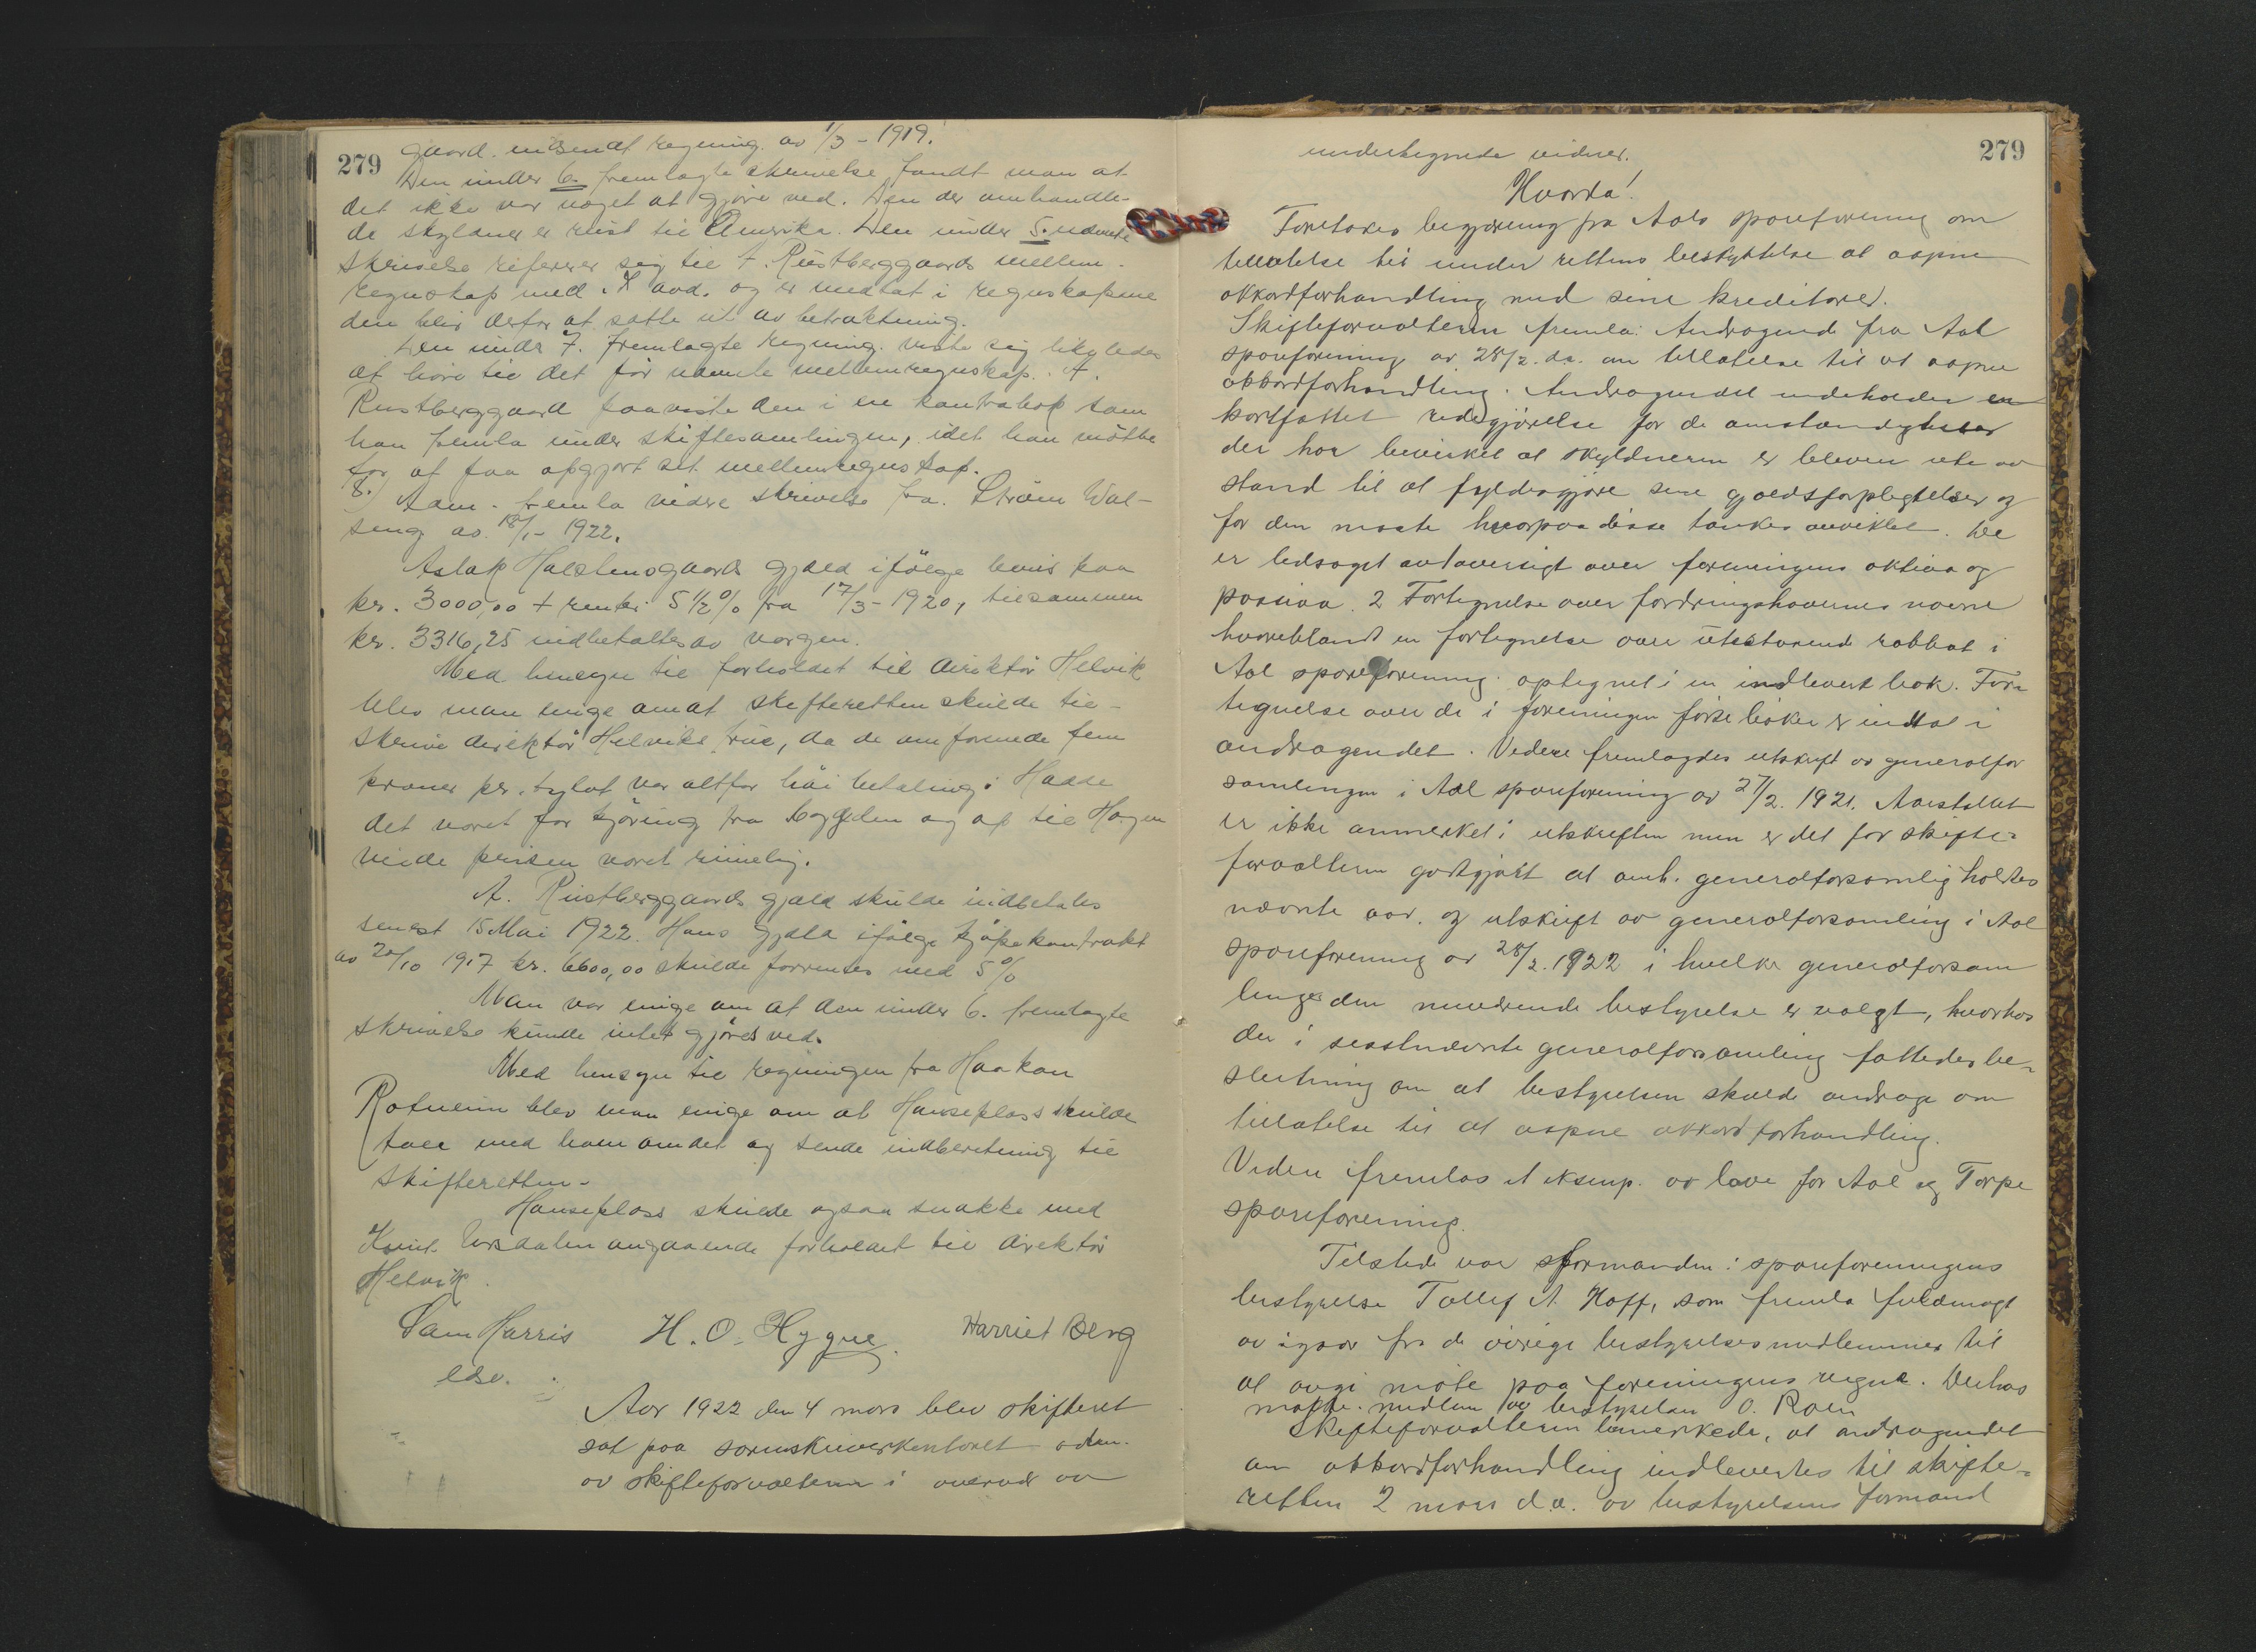 gaard. indsendt regning. av 1/3 - 1919.
279
Den under 6. fremlagte skrivelse fandt man at
det ikke var noget at gjöre ved. Den der omhandle-
de skyldner er reist til Amerika. Den under 5. nævnte
skrivelse referrer sig til A. Rustberggaards mellem-
regnskap med avd. og er medtat i regnskapene
den blir derfor at sætte ut av betraktning.
Den under 7. fremlagte regning. viste sig likeledes
at höre til det för nævnte mellemregnskap. A.
Rustberggaard paaviste den i en kontrabok som
han fremla under skiftesamlingen, idet han mötte
for at faa opgjort sit mellemregnskap.
8.) Sam. fremla videre skrivelse fra Ström Wal-
seng av 18/1 - 1922.
Aslak Halstensgaards gjæld ifölge bevis paa
kr. 3000,00 + renter 5 1/2 % fra 17/3 - 1920, tilsammen
kr. 3316,25 indbetaltes av vergen.
Med hensyn til forholdet til direktör Helvik
blev man enige om at skifteretten skulde til-
skrive direktör Helviks frue, da de omforenede fem
kroner pr. tylvt var altfor höi betaling. Hadde
det været for kjöring fra bygden og op til Hagen
vilde prisen været rimelig.
A. Rustberggaards gjæld skulde indbetales
senest 15 Mai 1922. Hans gjæld ifölge kjöpekontrakt
av 20/10 1917 kr. 6600,00 skulde forrentes med 5 %
Man var enige om at den under 6. fremlagte
skrivelse kunde intet gjöres ved.
Med hensyn til regningen fra Haakon
Rotneim blev man enige om at Hanseplass skulde
tale med ham om det og sende indberetning til
skifteretten.
Hanseplass skulde ogsaa snakke med
Knut Ursdalen angaaende forholdet til direktör
Helvik.
Sam Harris H. O. Hygne. Harriet Berg
edsv.
Aar 1922 den 4 mars blev skifteret
sat paa sorenskriverkontoret
av skifteforvalteren i overvær av
279
undertegnede vidner.
Hvorda!
Foretoges begjæring fra Aals spareforening om
tillatelse til under rettens beskyttelse at aapne
akkordforhandling med sine kreditorer.
Skifteforvalteren fremla: Andragende fra Aal
spareforening av 28/2. d.a. om tillatelse til at aapne
akkordforhandling. Andragendet indeholder en
kortfattet redegjörelse for de omstændigheter
der har bevirket at skyldneren er bleven ute av
stand til at fyldesgjöre sine gjældsforpligtelser og
for den maate hvorpaa disse tænkes avviklet. De
er ledsaget av 1 oversigt over foreningens aktiva og
passiva. 2 Fortegnelse over fordringshavernes navne
hvoriblandt en fortegnelse over utestaaende rabbat i
Aal spareforening optegnet i en indlevert bok. For-
tegnelse over de i foreningen förte böker er indtat i
andragendet. Videre fremlagdes utskrift av generalfor
samlingen i Aal spareforening av 27/2. 1921. Aarstallet
er ikke anmerket i utskriften men er det for skifte-
forvalteren godtgjört at omh. generalforsamling holdtes
nævnte aar. og utskrift av generalforsamling i Aal
spareforening av 28/2. 1922 i hvilke generalforsam
linger den nuværende bestyrelse er valgt, hvorhos
der i sisstnævnte generalforsamling fattedes be-
slutning om at bestyrelsen skulde andrage om
tillatelse til at aapne akkordforhandling.
Videre fremlas et eksemp. av love for Aal og Torpe
spareforening.
Tilstede var formanden i spareforeningens
bestyrelse Tollef A. Hoff, som fremla fuldmagt
av igaar fra de övrige bestyrelsesmedlemmer til
at avgi möte paa foreningens vegne. Derhos
mötte medlem av bestyrelsen O. Roen
Skifteforvalteren bemerkede, at andragendet
om akkordforhandling indlevertes til skifte-
retten 2 mars d.a. av bestyrelsens formand